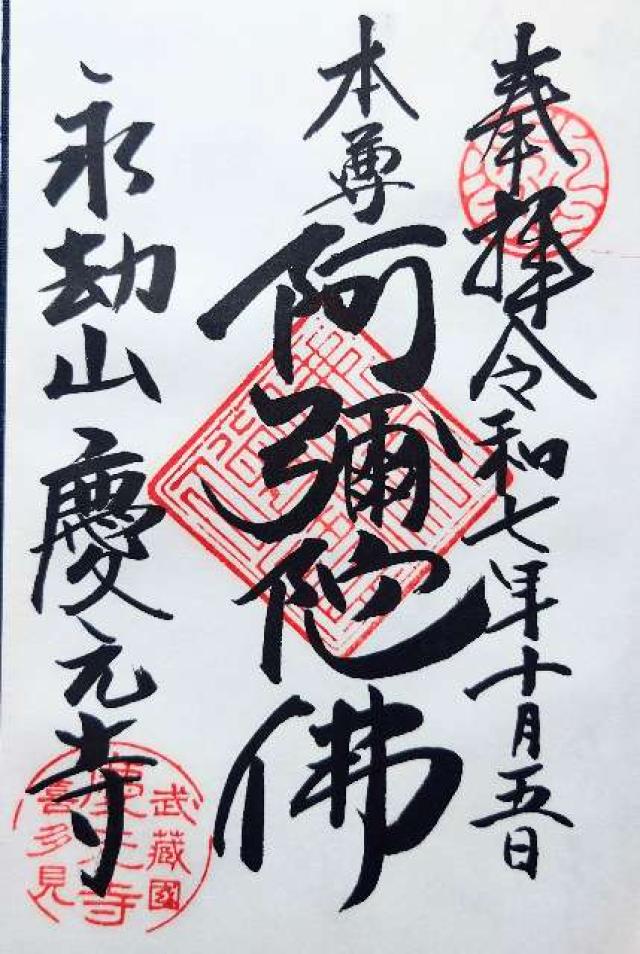 奉拝令和七年十月五日
本尊阿彌陀佛
永劫山慶元寺
武蔵國
慶元寺
喜多見